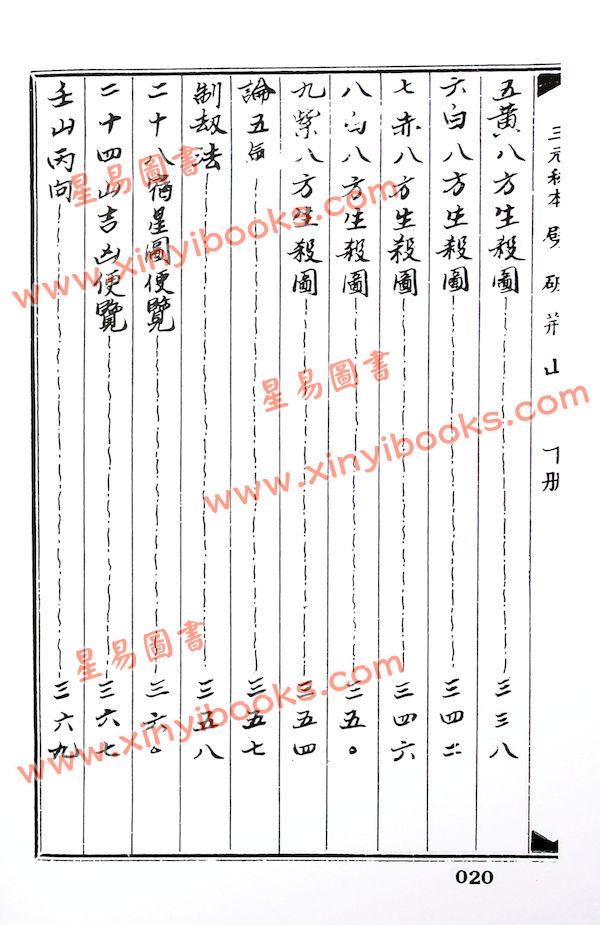 三元秘本 山 下册
五黃八方生殺圖 三三八
六白八方生殺圖 三四二
七赤八方生殺圖 三四六
八白八方生殺圖 三五〇
九紫八方生殺圖 三五四
論五 三五七
制劫法 三五八
二十八宿星圖便覽 三六〇
二十四山吉凶便覽 三六七
壬山丙向 三六九
020
星易圖書
www.xinyibooks.com
星易圖書
www.xinyibooks.com
星易圖書
www.xinyibooks.com